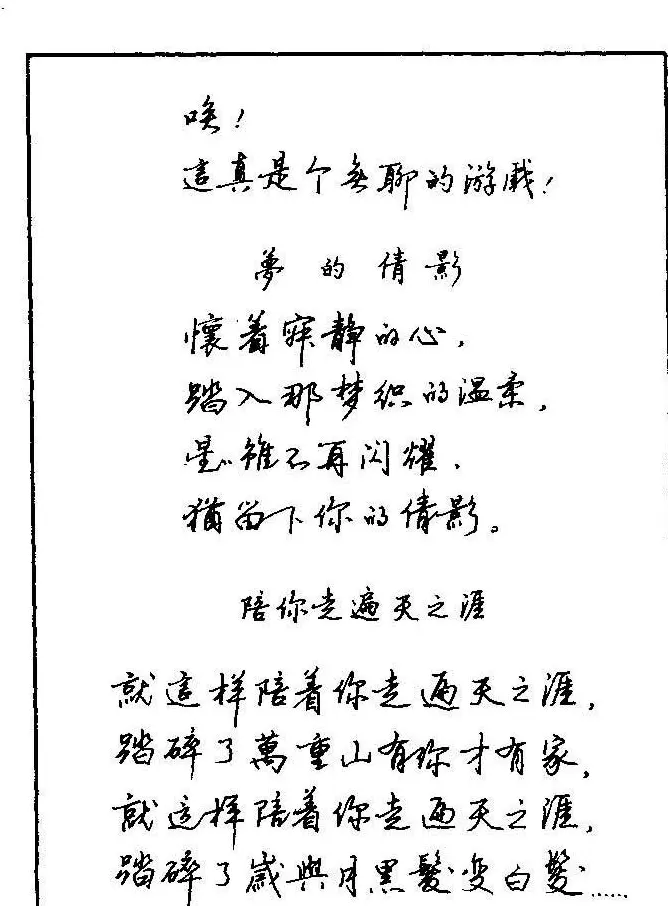 唉！
這真是个無聊的游戏！
夢的倩影
懷着寂静的心，
踏入那梦织的温柔，
星雖不再闪耀，
猶留下你的倩影。
陪你走遍天之涯
就這样陪着你走遍天之涯，
踏碎了萬重山有你才有家，
就这样陪着你走遍天之涯，
踏碎了歲與月黑髮变白髮……